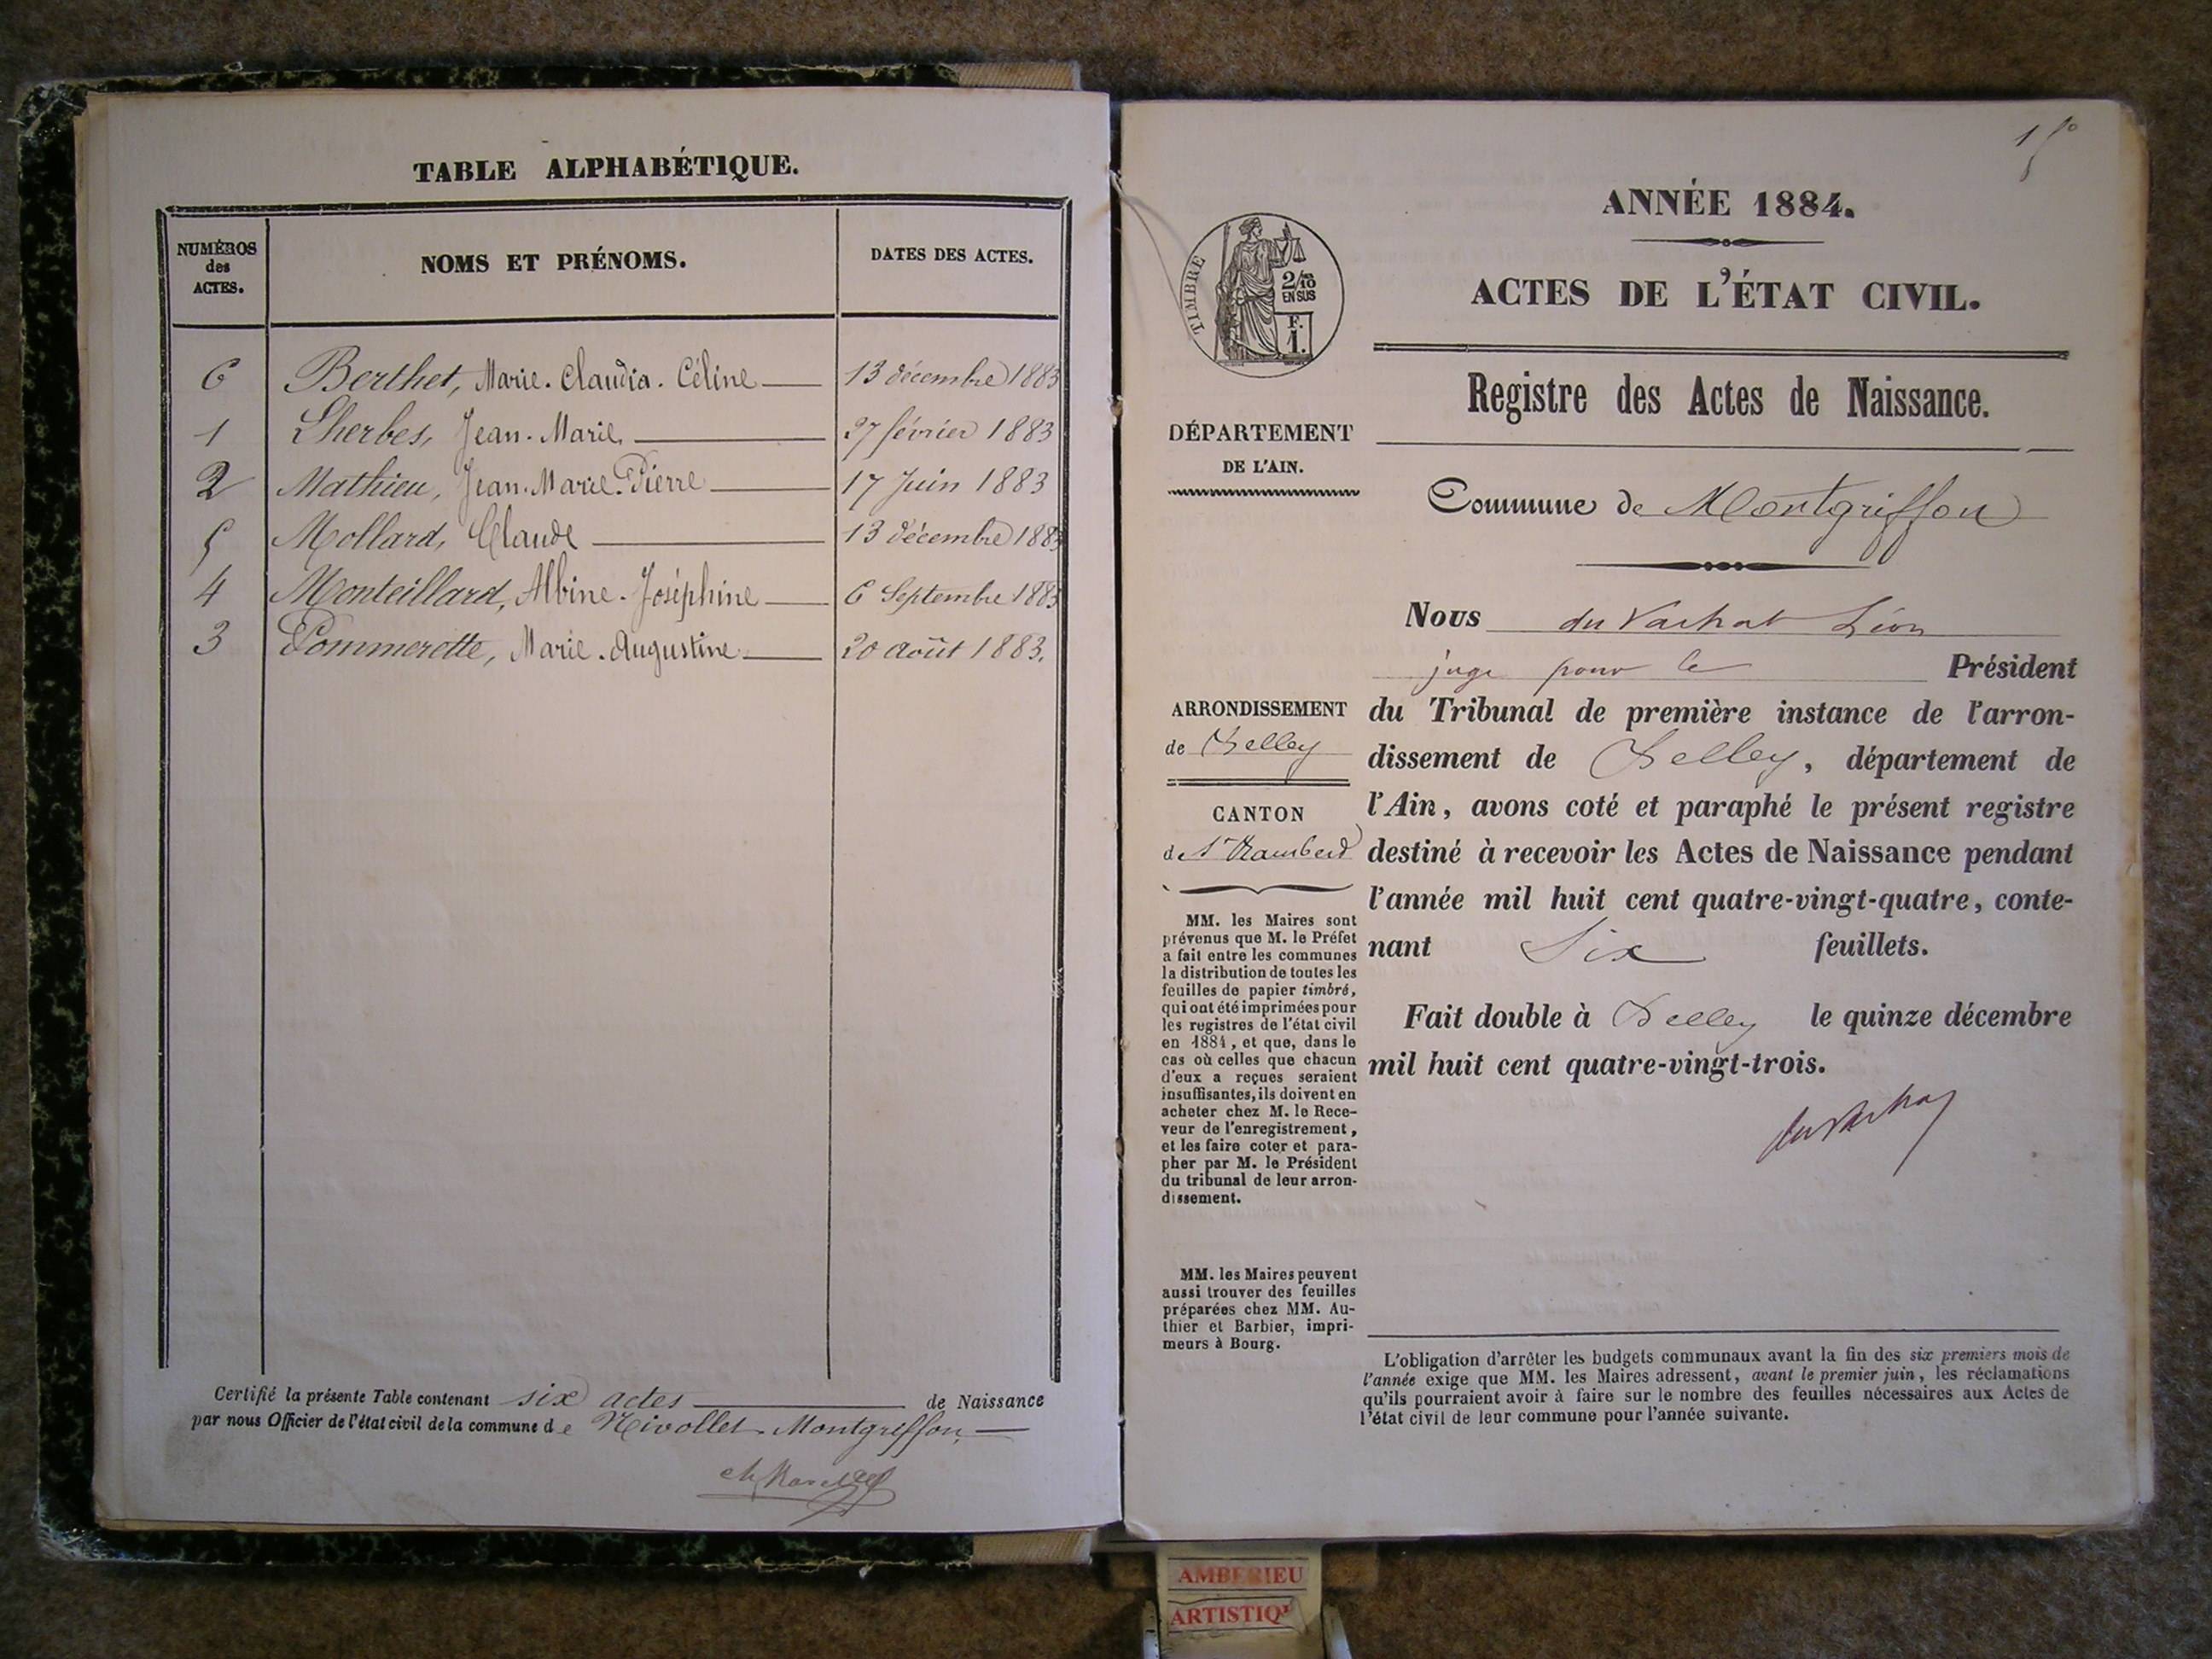 TABLE ALPHABÉTIQUE.
NUMÉROS des ACTES. NOMS ET PRÉNOMS. DATES DES ACTES.
6 Berthet, Marie. Claudia. Céline 13 décembre 1883
1 Lherbes, Jean. Marie, 27 février 1883
2 Mathieu, Jean. Marie. Pierre 17 Juin 1883
5 Mollard, Claude 13 décembre 1883
4 Monteillard, Albine. Joséphine 6 Septembre 1883
3 Pommerette, Marie. Augustine 20 Août 1883.
Certifié la présente Table contenant six actes de Naissance
par nous Officier de l'état civil de la commune de Nivollet-Montgriffon
1 fo
ANNÉE 1884.
ACTES DE L'ÉTAT CIVIL.
Registre des Actes de Naissance.
TIMBRE
2/10
EN SUS
F.
1.
DÉPARTEMENT
DE L'AIN.
Commune de Montgriffon
Nous du Vachat Léon
juge pour le Président
du Tribunal de première instance de l'arron-
dissement de Belley, département de
l'Ain, avons coté et paraphé le présent registre
destiné à recevoir les Actes de Naissance pendant
l'année mil huit cent quatre-vingt-quatre, conte-
nant Six feuillets.
Fait double à Belley le quinze décembre
mil huit cent quatre-vingt-trois.
du Vachat
ARRONDISSEMENT
de Belley
CANTON
de St Rambert
MM. les Maires sont
prévenus que M. le Préfet
a fait entre les communes
la distribution de toutes les
feuilles de papier timbré,
qui ont été imprimées pour
les registres de l'état civil
en 1884, et que, dans le
cas où celles que chacun
d'eux a reçues seraient
insuffisantes, ils doivent en
acheter chez M. le Rece-
veur de l'enregistrement,
et les faire coter et para-
pher par M. le Président
du tribunal de leur arron-
dissement.
MM. les Maires peuvent
aussi trouver des feuilles
préparées chez MM. Au-
thier et Barbier, impri-
meurs à Bourg.
L'obligation d'arrêter les budgets communaux avant la fin des six premiers mois de
l'année exige que MM. les Maires adressent, avant le premier juin, les réclamations
qu'ils pourraient avoir à faire sur le nombre des feuilles nécessaires aux Actes de
l'état civil de leur commune pour l'année suivante.
AMBERIEU
ARTISTIQ